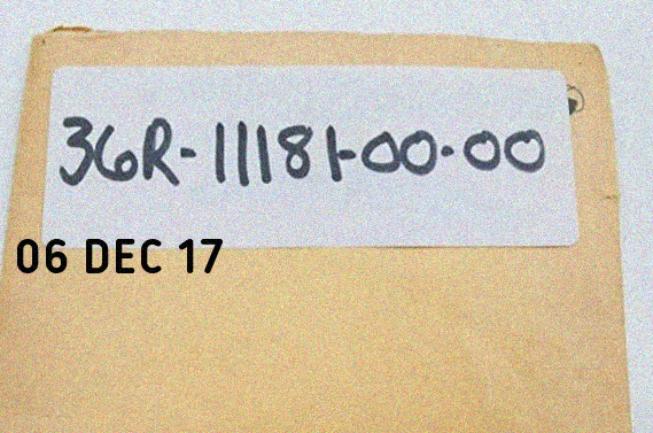 36R-11181-00-00
06 DEC 17